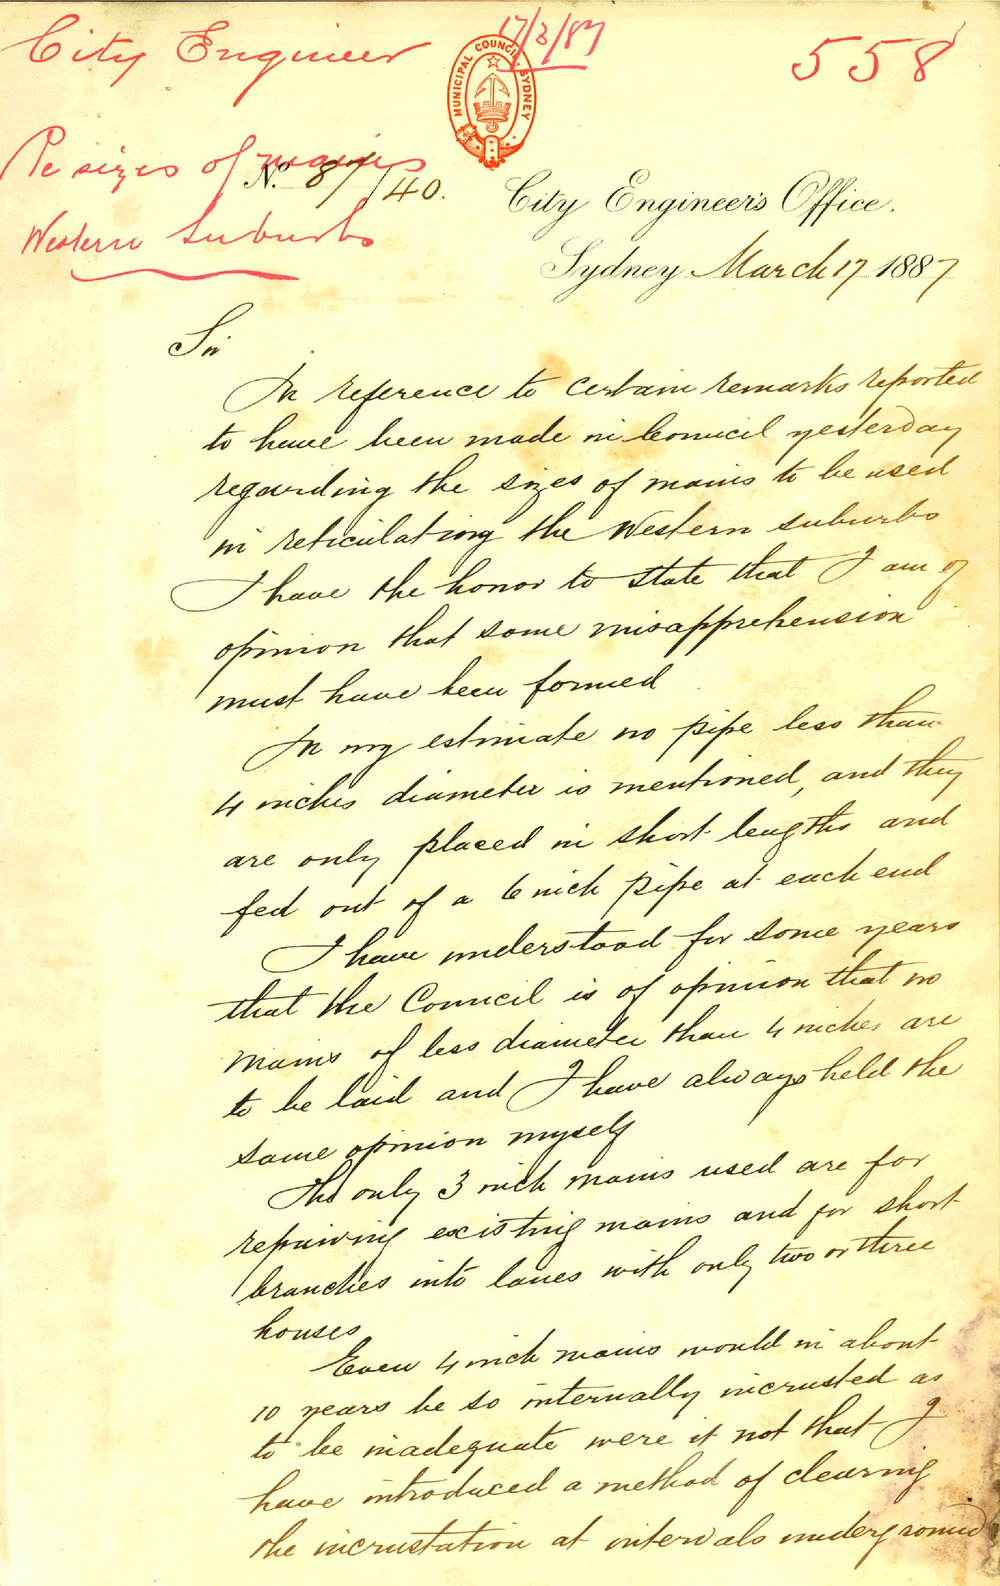 17/3/87
City Engineer
558
MUNICIPAL COUNCIL SYDNEY
Re sizes of mains
No. 87/40.
Western Suburbs
City Engineer's Office.
Sydney March 17 1887
Sir
In reference to certain remarks reported
to have been made in Council yesterday
regarding the sizes of mains to be used
in reticulating the Western suburbs
I have the honor to state that I am of
opinion that some misapprehension
must have been formed
In my estimate no pipe less than
4 inches diameter is mentioned, and they
are only placed in short lengths and
fed out of a 6 inch pipe at each end
I have understood for some years
that the Council is of opinion that no
mains of less diameter than 4 inches are
to be laid and I have always held the
same opinion myself
The only 3 inch mains used are for
repairing existing mains and for short
branches into lanes with only two or three
houses
Even 4 inch mains would in about
10 years be so internally incrusted as
to be inadequate were it not that I
have introduced a method of clearing
the incrustation at intervals underground